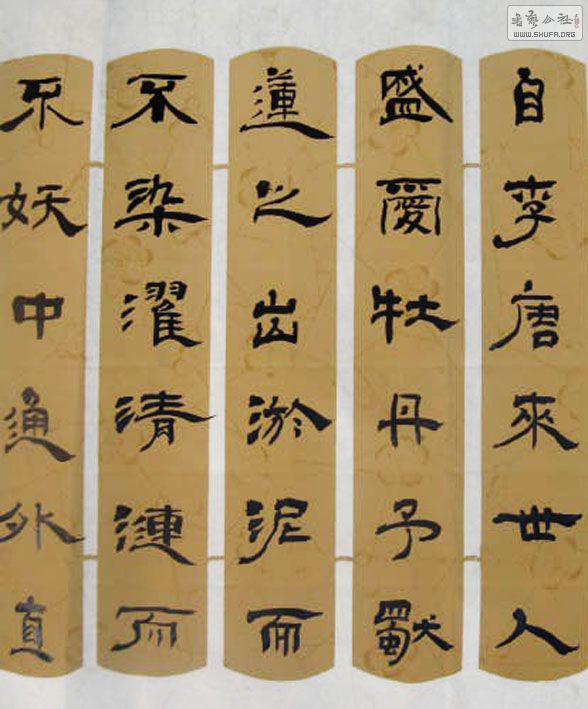 自李唐來世人
盛愛牡丹予獨
蓮之出淤泥而
不染濯清漣而
不妖中通外直
書藝公社
WWW.SHUFA.ORG